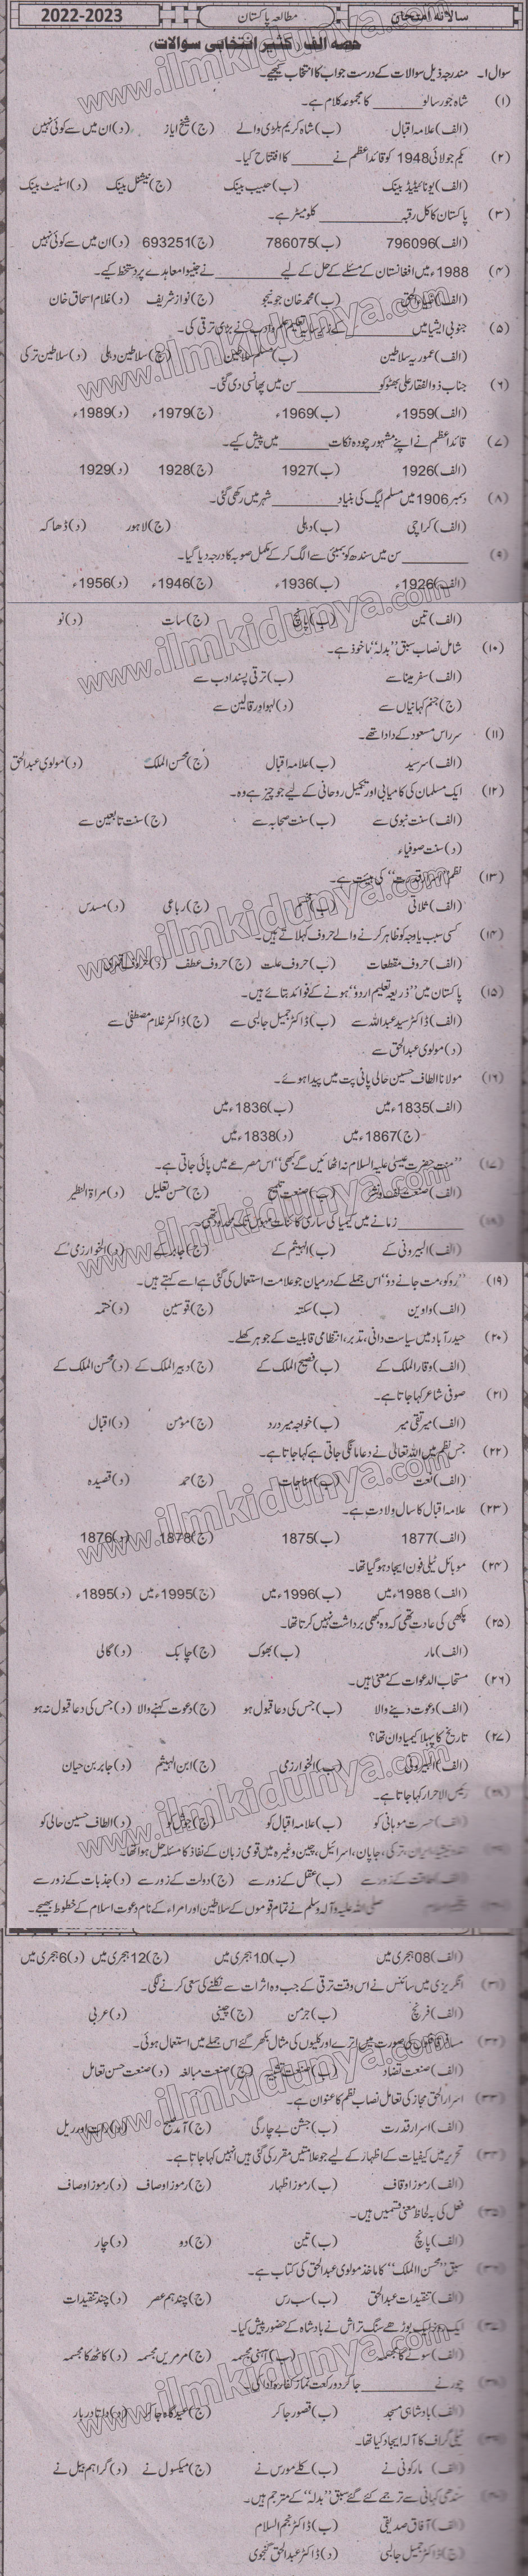 سالانہ امتحان
مطالعہ پاکستان
2022-2023
حصہ الف (کثیر انتخابی سوالات)
سوال۱۔ مندرجہ ذیل سوالات کے درست جواب کا انتخاب کیجیے۔
(۱) شاہ جو رسالو ______ کا مجموعہ کلام ہے۔
(الف) علامہ اقبال (ب) شاہ کریم بلڑی والے (ج) شیخ ایاز (د) ان میں سے کوئی نہیں
(۲) یکم جولائی 1948 کو قائداعظم نے ______ کا افتتاح کیا۔
(الف) یونائیٹیڈ بینک (ب) حبیب بینک (ج) نیشنل بینک (د) اسٹیٹ بینک
(۳) پاکستان کا کل رقبہ ______ کلو میٹر ہے۔
(الف) 796096 (ب) 786075 (ج) 693251 (د) ان میں سے کوئی نہیں
(۴) 1988ء میں افغانستان کے مسئلے کے حل کے لیے ______ نے جنیوا معاہدے پر دستخط کیے۔
(الف) ضیاءالحق (ب) محمد خان جونیجو (ج) نواز شریف (د) غلام اسحاق خان
(۵) جنوبی ایشیا میں ______ کے زیر سایہ تعلیم علم و ادب نے بڑی ترقی کی۔
(الف) عموریہ سلاطین (ب) مسلم سلاطین (ج) سلاطین دہلی (د) سلاطین ترکی
(۶) جناب ذوالفقار علی بھٹو کو ______ سن میں پھانسی دی گئی۔
(الف) 1959ء (ب) 1969ء (ج) 1979ء (د) 1989ء
(۷) قائداعظم نے اپنے مشہور چودہ نکات ______ میں پیش کیے۔
(الف) 1926 (ب) 1927 (ج) 1928 (د) 1929
(۸) دسمبر 1906 میں مسلم لیگ کی بنیاد ______ شہر میں رکھی گئی۔
(الف) کراچی (ب) دہلی (ج) لاہور (د) ڈھاکہ
(۹) ______ سن میں سندھ کو بمبئی سے الگ کر کے مکمل صوبہ کا درجہ دیا گیا۔
(الف) 1926ء (ب) 1936ء (ج) 1946ء (د) 1956ء
(الف) تین (ب) پانچ (ج) سات (د) نو
(۱۰) شامل نصاب سبق ”بدلہ“ ماخوذ ہے۔
(الف) سفر مینا سے (ب) ترقی پسند ادب سے
(ج) جنم کہانیاں سے (د) لہو اور قالین سے
(۱۱) سر راس مسعود کے دادا تھے۔
(الف) سرسید (ب) علامہ اقبال (ج) محسن الملک (د) مولوی عبدالحق
(۱۲) ایک مسلمان کی کامیابی اور تکمیل روحانی کے لیے جو چیز ہے وہ۔
(الف) سنت نبوی سے (ب) سنت صحابہ سے (ج) سنت تابعین سے
(د) سنت صوفیاء
(۱۳) نظم ”اسرار قدرت“ کی ہیئت ہے۔
(الف) ثلاثی (ب) مخمس (ج) رباعی (د) مسدس
(۱۴) کسی سبب یا وجہ کو ظاہر کرنے والے حروف کہلاتے ہیں۔
(الف) حروف مقطعات (ب) حروف علت (ج) حروف عطف (د) حروف قمری
(۱۵) پاکستان میں ”ذریعہ تعلیم اردو“ ہونے کے فوائد بتائے ہیں۔
(الف) ڈاکٹر سید عبداللہ سے (ب) ڈاکٹر جمیل جالبی سے (ج) ڈاکٹر غلام مصطفیٰ سے
(د) مولوی عبدالحق سے
(۱۶) مولانا الطاف حسین حالی پانی پت میں پیدا ہوئے۔
(الف) 1835ء میں (ب) 1836ء میں
(ج) 1867ء میں (د) 1838ء میں
(۱۷) ”منت حضرت عیسیٰ علیہ السلام نہ اٹھائیں گے کبھی“ اس مصرعے میں پائی جاتی ہے۔
(الف) صنعت لف و نشر (ب) صنعت تلمیح (ج) حسن تعلیل (د) مراۃ النظیر
(۱۸) ______ زمانے میں کیمیا کی ساری کائنات مہوسی تک محدود تھی۔
(الف) البیرونی کے (ب) الہیثم کے (ج) جابر کے (د) الخوارزمی کے
(۱۹) ”روکو، مت جانے دو“ اس جملے کے درمیان جو علامت استعمال کی گئی ہے اسے کہتے ہیں۔
(الف) واوین (ب) سکتہ (ج) قوسین (د) ختمہ
(۲۰) حیدر آباد میں سیاست دانی، تدبر، انتظامی قابلیت کے جوہر کھلے۔
(الف) وقار الملک کے (ب) فصیح الملک کے (ج) دبیر الملک کے (د) محسن الملک کے
(۲۱) صوفی شاعر کہا جاتا ہے۔
(الف) میر تقی میر (ب) خواجہ میر درد (ج) مومن (د) اقبال
(۲۲) جس نظم میں اللہ تعالیٰ نے دعا مانگی جاتی ہے کہا جاتا ہے۔
(الف) نعت (ب) مناجات (ج) حمد (د) قصیدہ
(۲۳) علامہ اقبال کا سال ولادت ہے۔
(الف) 1877 (ب) 1875 (ج) 1878 (د) 1876
(۲۴) موبائل ٹیلی فون ایجاد ہو گیا تھا۔
(الف) 1988ء میں (ب) 1996ء میں (ج) 1995ء میں (د) 1895ء
(۲۵) پکھی کی عادت تھی کہ وہ کبھی برداشت نہیں کرتا تھا۔
(الف) مار (ب) بھوک (ج) چابک (د) گالی
(۲۶) مستجاب الدعوات کے معنی ہیں۔
(الف) دعوت دینے والا (ب) جس کی دعا قبول ہو (ج) دعوت کہنے والا (د) جس کی دعا قبول نہ ہو
(۲۷) تاریخ کا پہلا کیمیا دان تھا؟
(الف) البیرونی (ب) الخوارزمی (ج) ابن الہیثم (د) جابر بن حیان
(۲۸) رئیس الاحرار کہا جاتا ہے۔
(الف) حسرت موہانی کو (ب) علامہ اقبال کو (ج) جوش کو (د) الطاف حسین حالی کو
ایران، ترکی، جاپان، اسرائیل، چین وغیرہ میں قومی زبان کے نفاذ کا مسئلہ حل ہوا تھا۔
(الف) طاقت کے زور سے (ب) عقل کے زور سے (ج) دولت کے زور سے (د) جذبات کے زور سے
صلی اللہ علیہ وآلہ وسلم نے تمام قوموں کے سلاطین اور امراء کے نام دعوت اسلام کے خطوط بھیجے۔
(الف) 08 ہجری میں (ب) 10 ہجری میں (ج) 12 ہجری میں (د) 6 ہجری میں
(۳۱) انگریزی میں سائنس نے اس وقت ترقی کے جب وہ اثرات سے نکلنے کی سعی کرنے لگی۔
(الف) فرنچ (ب) جرمن (ج) چینی (د) عربی
(۳۲) مسافر قافلوں کی صورت میں اترے اور کلیوں کی مثال بکھر گئے اس جملے میں استعمال ہوئی۔
(الف) صنعت تضاد (ب) صنعت تشبیہ (ج) صنعت مبالغہ (د) صنعت حسن تعامل
(۳۳) اسرار الحق مجاز کی تعامل نصاب نظم کا عنوان ہے۔
(الف) اسرار قدرت (ب) جشن بے چارگی (ج) آمد صبح (د) رات اور ریل
(۳۴) تحریر میں کیفیات کے اظہار کے لیے جو علامتیں مقرر کی گئی ہیں انہیں کہا جاتا ہے۔
(الف) رموز اوقاف (ب) رموز اظہار (ج) رموز اوصاف (د) رموز اوصاف
(۳۵) فعل کی بہ لحاظ معنی قسمیں ہیں۔
(الف) پانچ (ب) تین (ج) دو (د) چار
(۳۶) سبق ”محسن الملک“ کا ماخذ مولوی عبدالحق کی کتاب ہے۔
(الف) تنقیدات عبدالحق (ب) سب رس (ج) چند ہم عصر (د) چند تنقیدات
(۳۷) ایک روز ایک بوڑھے سنگ تراش نے بادشاہ کے حضور پیش کیا۔
(الف) سونے کا مجسمہ (ب) آہنی مجسمہ (ج) مرمریں مجسمہ (د) کاٹھ کا مجسمہ
(۳۸) چور نے ______ جا کر دو رکعت نماز کفارہ ادا کی۔
(الف) بادشاہی مسجد (ب) قصور جا کر (ج) عیدگاہ جا کر (د) داتا دربار
(۳۹) ٹیلی گراف کا آلہ ایجاد کیا تھا۔
(الف) مارکونی نے (ب) کلے مورس نے (ج) میکسول نے (د) گراہم بیل نے
(۴۰) سندھی کہانی سے ترجمے کئے گئے سبق ”بدلہ“ کے مترجم ہیں۔
(الف) آفاق صدیقی (ب) ڈاکٹر نجم السلام
(ج) ڈاکٹر جمیل جالبی (د) ڈاکٹر عبدالحق گنجوی
www.ilmkidunya.com